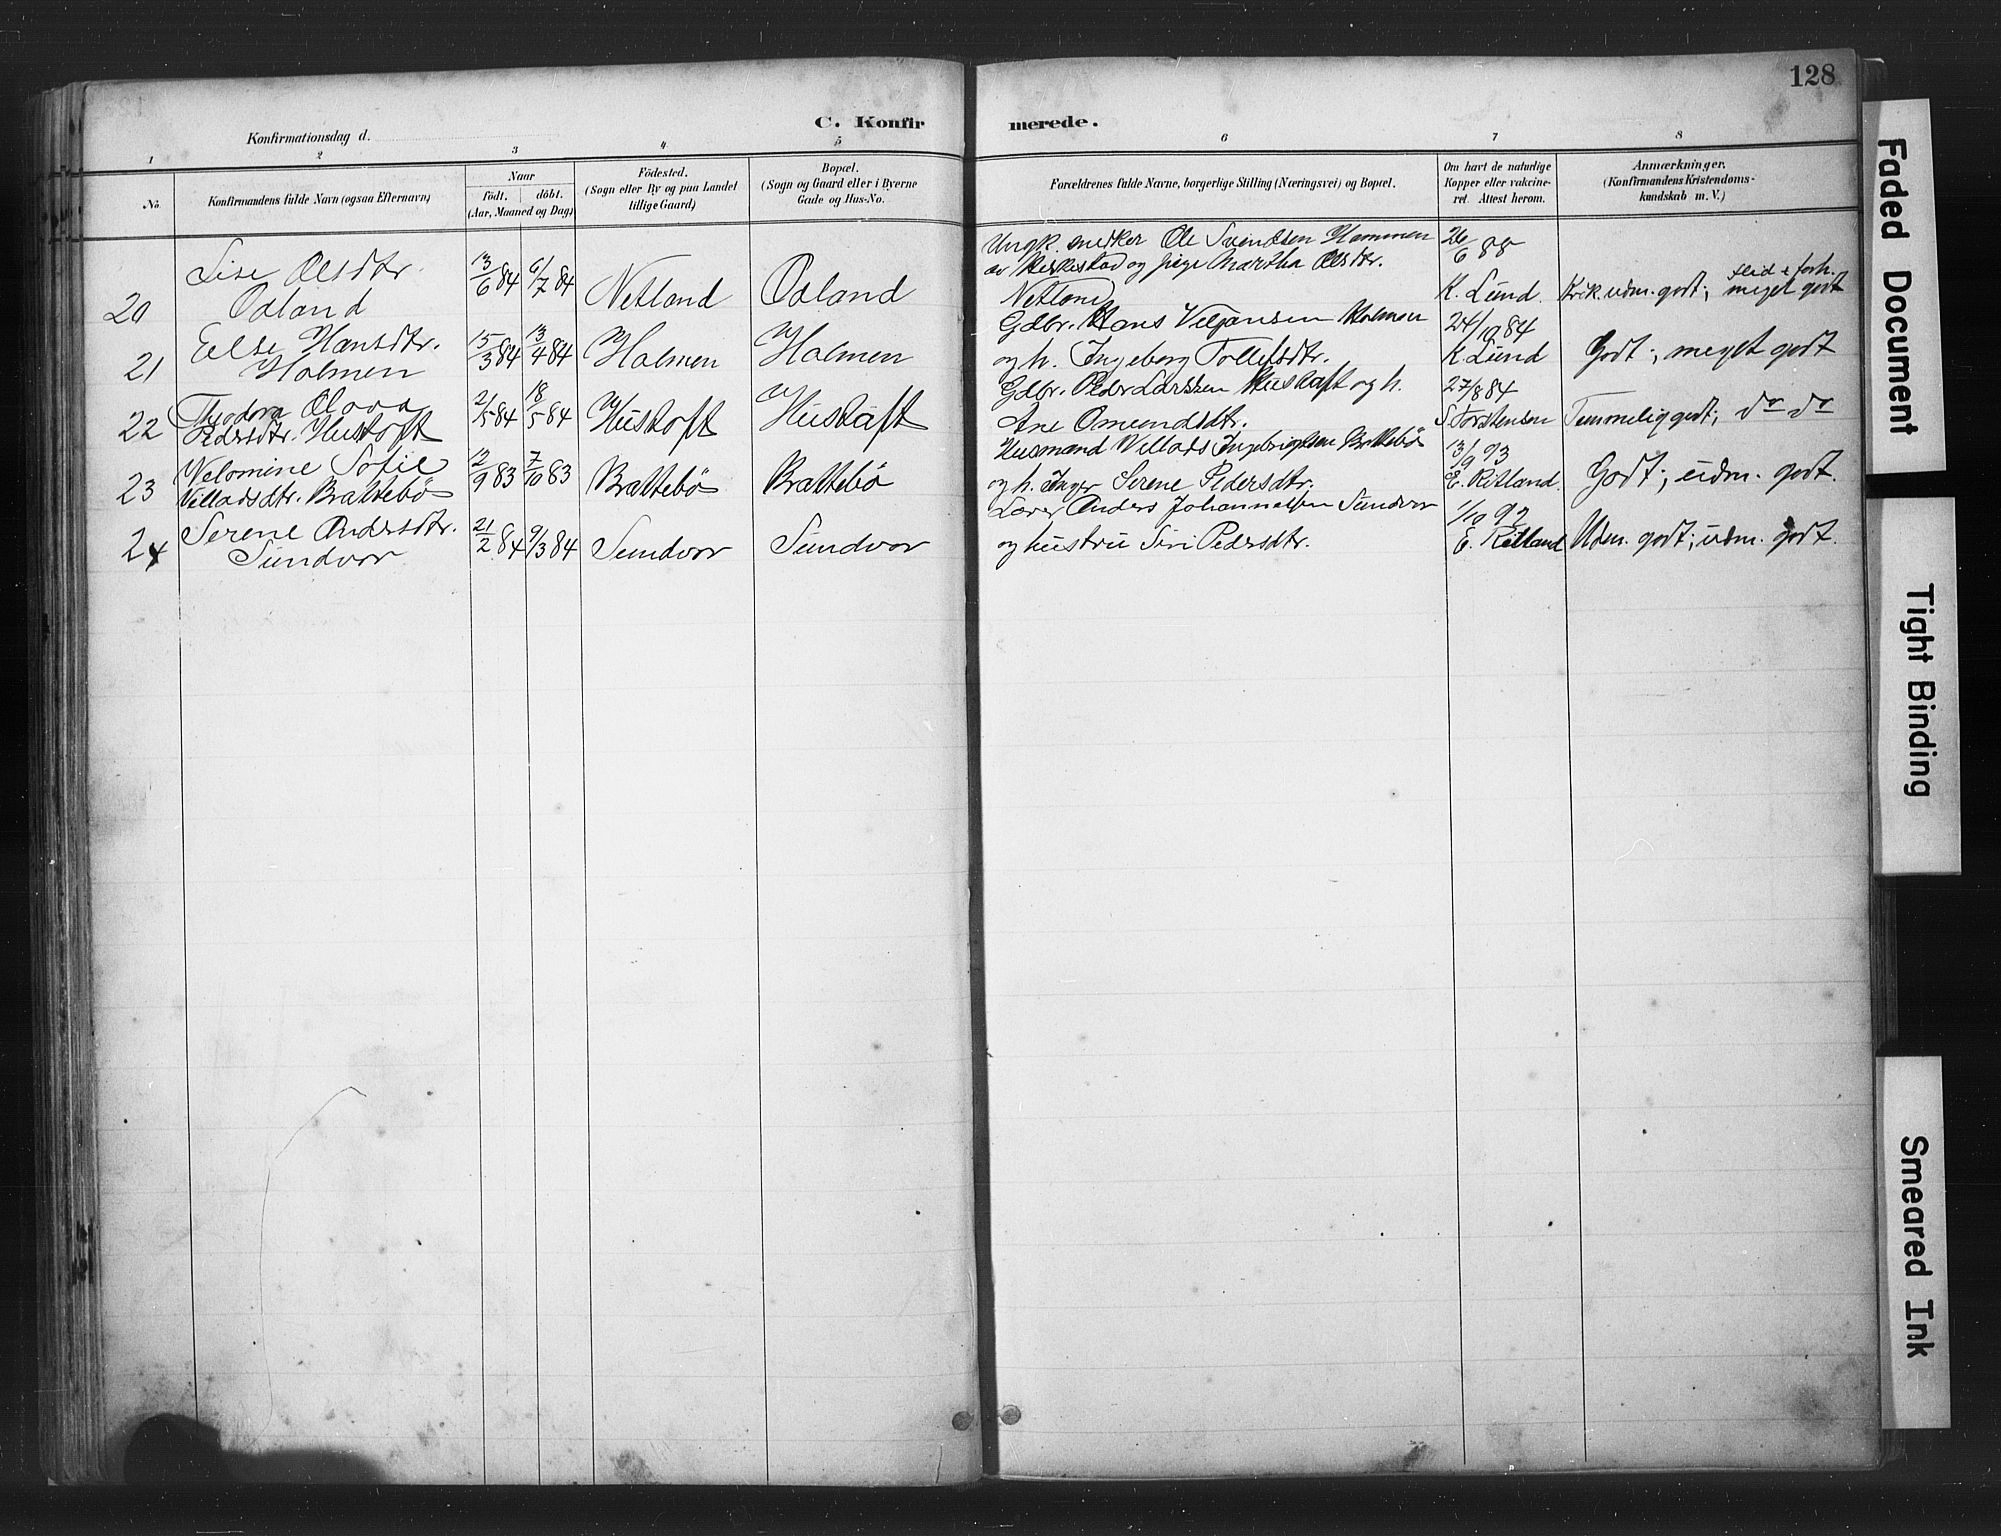 128
C. Konfirmerede.
Konfirmationsdag d.
1 2 3 4. 5 6 7 8
No. Konfirmandens fulde Navn (ogsaa Efternavn) Naar födt. döbt. (Aar, Maaned og Dag) Födested. (Sogn eller By og paa Landet tillige Gaard) Bopæl. (Sogn og Gaard eller i Byerne Gade og Hus-No. Forældrenes fulde Navne, borgerlige Stilling (Næringsvei) og Bopæl. Om havt de naturlige Kopper eller vakcineret. Attest herom. Anmærkninger. (Konfirmandens Kristendomskundskab m. V.)
20 Lise Olsdtr. Odland 13/6 84 6/7 84 Netland Odland Ungk. snedker Ole Svendsen Hammen
av Heskestad og pige Martha Olsdtr.
Netland 26/6 88 K. Lund. udm. godt; flid & forh. meget godt
21 Else Hansdtr. Holmen 15/3 84 13/4 84 Holmen Holmen Gdbr. Hans Holmen
og h. Ingeborg Tollefsdtr. 24/10 84 K. Lund Godt; meget godt
22 Theodora Olava Pedersdtr. Hustoft 2/5 84 18/5 84 Hustoft Hustoft Gdbr. Peder Larssen Hustoft og h.
Ane Omundsdtr. 27/8 84 S. Torstensen Temmelig godt; do do
23 Velomine Sofie Villadsdtr. Brattebö 12/9 83 7/10 83 Brattebö Brattebö Husmand Villads Ingebrigtsen Brattebö
og h. Inger Serene Pedersdtr. 13/9 93 E. Ritland. Godt; udm. godt.
24 Serene Andersdtr. Sundvor 21/2 84 9/3 84 Sundvor Sundvor Lærer Anders Johannessen Sundvor
og hustru Siri Pedersdtr. 1/10 92 E. Ritland Udm. godt; udm. godt.
Faded Document
Tight Binding
Smeared Ink